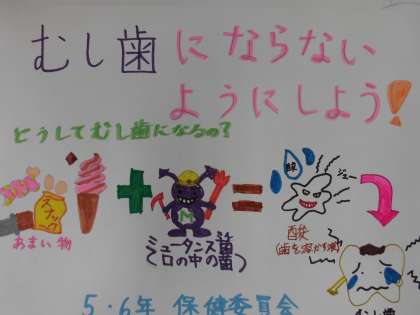 むし歯にならない
ようにしよう!
どうしてむし歯になるの?
スナック
あまい物
M
ミュータンス菌
(口の中の菌)
酸
ジュー
酸
(歯を溶かす液)
むし歯
5・6年 保健委員会